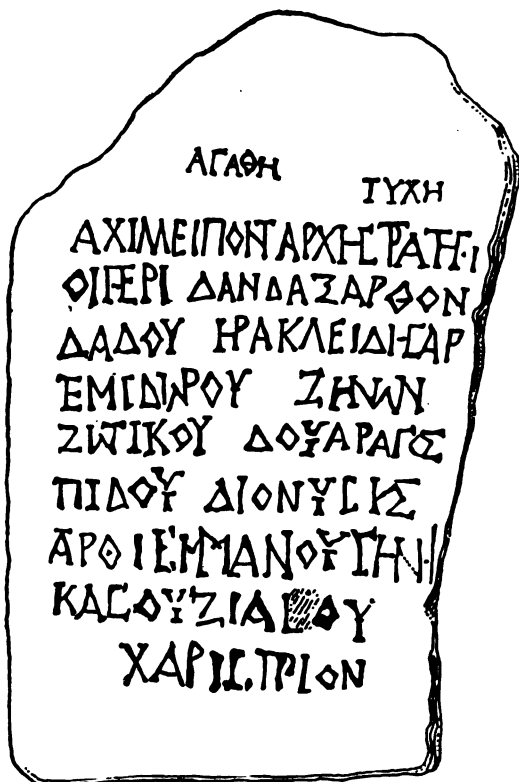 ΑΓΑΘΗ ΤΥΧΗ
ΑΧΙΛΛΕΙΠΟΝΤΑΡΧΗCΤΡΑΤΗΓΙ
ΟΙΠΕΡΙ ΔΑΝΔΑΞΑΡΘΟΝ
ΔΑΔΟΥ ΗΡΑΚΛΕΙΔΗCΑΡ
ΤΕΜΙΔΩΡΟΥ ΖΗΝΩΝ
ΖΩΤΙΚΟΥ ΔΟΥΑΡΑΓΟΣ
ΠΙΔΟΥ ΔΙΟΝΥCΙΣ
ΚΑCΟΥ
ΧΑΡΙCΤΗΡΙΟΝ